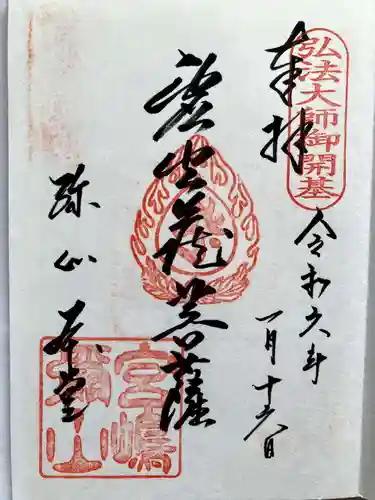 弘法大師御開基
奉拝
令和六年
一月十六日
虚空蔵菩薩
弥山
本堂
宮嶋
弥山